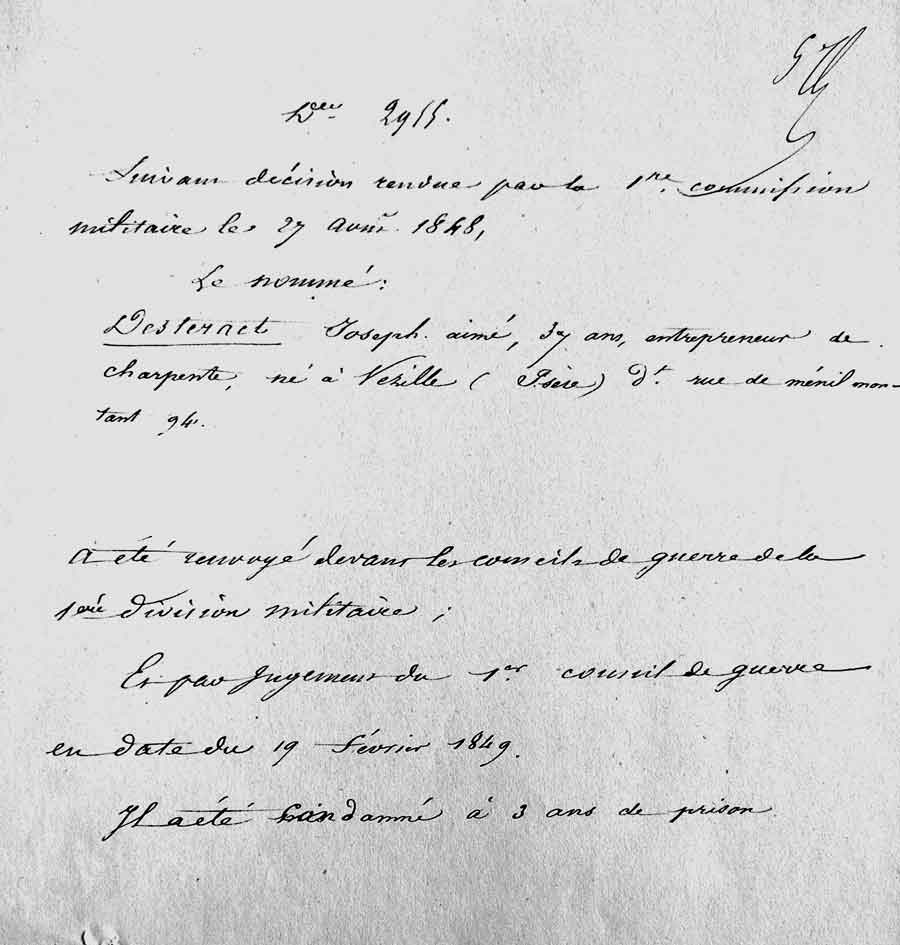 Der 2955.
Suivant décision rendue par la 1re. commission
militaire le 27 Avril 1848,
Le nommé:
Desteract Joseph. aimé, 37 ans, entrepreneur de
charpente, né à Vezille (Isère) dt. rue de ménil mon-
tant 94.
A été renvoyé devant les conseils de guerre de la
1ère division militaire ;
Et par Jugement du 1er conseil de guerre
en date du 19 février 1849.
Il a été Condamné à 3 ans de prison